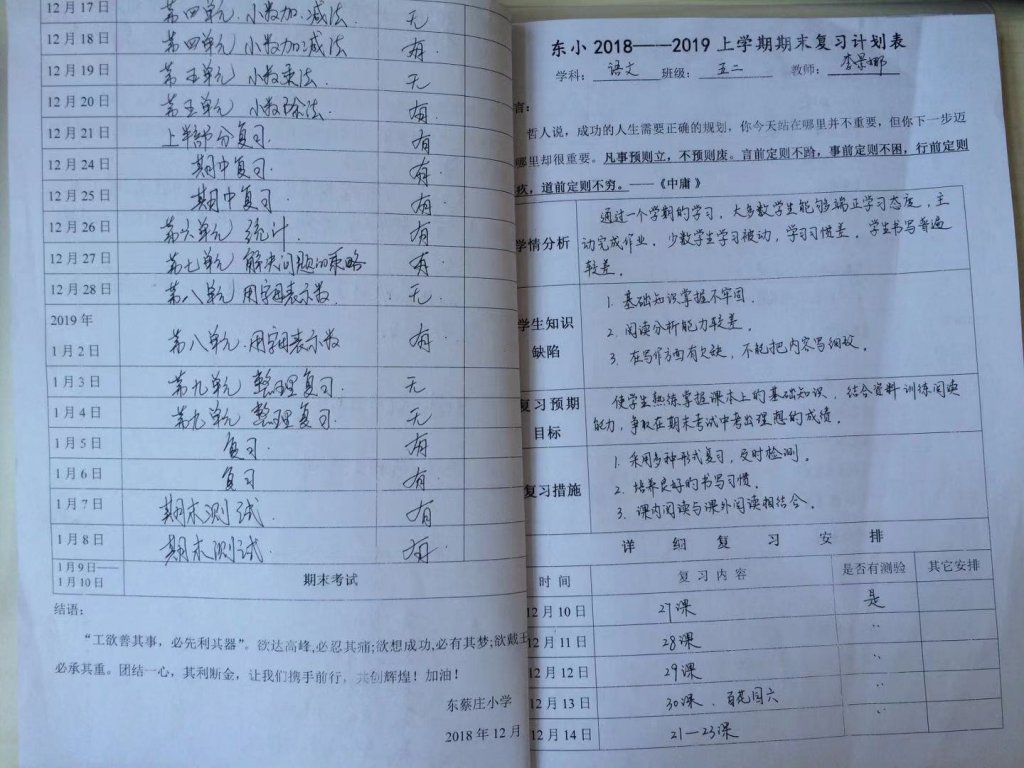 12月17日 第四单元.小数加.减法 无
12月18日 第四单元 小数加减法 有
12月19日 第五单元 小数乘法 无
12月20日 第五单元 小数除法. 有
12月21日 上半部分复习. 有
12月24日 期中复习. 有
12月25日 期中复习. 有
12月26日 第六单元 统计. 有
12月27日 第七单元 解决问题的策略 有
12月28日 第八单元 用字母表示数. 无.
2019年
1月2日 第八单元.用字母表示数 有
1月3日 第九单元 整理复习. 无
1月4日 第九单元 整理复习. 无
1月5日 复习. 有
1月6日 复习 有
1月7日 期末测试. 有
1月8日 期末测试. 有
1月9日——
1月10日 期末考试
结语:
“工欲善其事，必先利其器”。欲达高峰,必忍其痛;欲想成功,必有其梦;欲戴王
必承其重。团结一心，其利断金，让我们携手前行，共创辉煌！加油！
东蔡庄小学
2018年12月
东小2018——2019上学期期末复习计划表
学科: 语文 班级: 五二 教师: 李景娜
言:
哲人说，成功的人生需要正确的规划，你今天站在哪里并不重要，但你下一步迈
哪里却很重要。凡事预则立，不预则废。言前定则不跲，事前定则不困，行前定则
疚，道前定则不穷。——《中庸》
学情分析
通过一个学期的学习，大多数学生能够端正学习态度，主
动完成作业，少数学生学习被动，学习习惯差，学生书写普遍
较差。
学生知识
缺陷
1. 基础知识掌握不牢固.
2. 阅读分析能力较差.
3. 在写作方面有欠缺，不能把内容写细致.
复习预期
目标
使学生熟练掌握课本上的基础知识，结合资料训练阅读
能力，争取在期末考试中考出理想的成绩.
复习措施
1. 采用多种形式复习，及时检测.
2. 培养良好的书写习惯.
3. 课内阅读与课外阅读相结合.
详 细 复 习 安 排
时间 复习内容 是否有测验 其它安排
12月10日 27课 是
12月11日 28课 〃
12月12日 29课 〃
12月13日 30课、百花园六 〃
12月14日 21—23课 〃